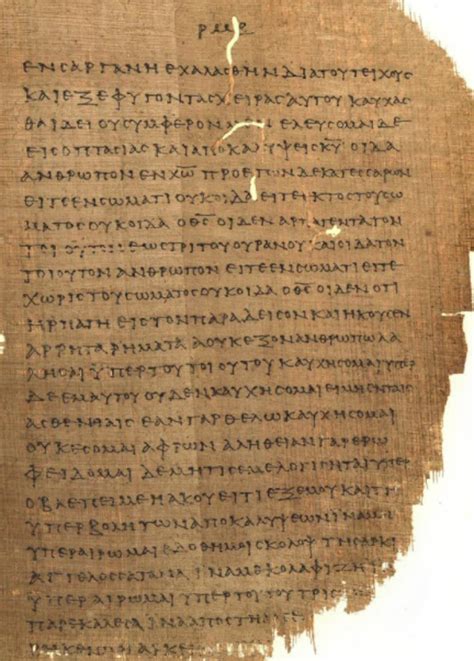 ΕΝϹΑΡΓΑΝΗΕΧΑΛΑϹΘΗΝΔΙΑΤΟΥΤΕΙΧΟΥϹ
ΚΑΙΕΞΕΦΥΓΟΝΤΑϹΧΕΙΡΑϹΑΥΤΟΥΚΑΥΧΑϹ
ΘΑΙΔΕΙΟΥϹΥΜΦΕΡΟΝΜΕΝΕΛΕΥϹΟΜΑΙΔΕ
ΕΙϹΟΠΤΑϹΙΑϹΚΑΙΑΠΟΚΑΛΥΨΕΙϹΚ̅Υ̅ΟΙΔΑ
ΑΝΘΡΩΠΟΝΕΝΧ̅Ω̅ΠΡΟΕΤΩΝΔΕΚΑΤΕϹϹΑΡΩΝ
ΕΙΤΕΕΝϹΩΜΑΤΙΟΥΚΟΙΔΑΕΙΤΕΕΚΤΟϹΤΟΥϹΩ
ΜΑΤΟϹΟΥΚΟΙΔΑΟΘ̅Ϲ̅ΟΙΔΕΝΑΡΠΑΓΕΝΤΑΤΟΝ
ΤΟΙΟΥΤΟΝΕΩϹΤΡΙΤΟΥΟΥΡΑΝΟΥΚΑΙΟΙΔΑΤΟΝ
ΤΟΙΟΥΤΟΝΑΝΘΡΩΠΟΝΕΙΤΕΕΝϹΩΜΑΤΙΕΙΤΕ
ΧΩΡΙϹΤΟΥϹΩΜΑΤΟϹΟΥΚΟΙΔΑΟΘ̅Ϲ̅ΟΙΔΕΝΟΤΙ
ΗΡΠΑΓΗΕΙϹΤΟΝΠΑΡΑΔΕΙϹΟΝΚΑΙΗΚΟΥϹΕΝ
ΑΡΡΗΤΑΡΗΜΑΤΑΑΟΥΚΕΞΟΝΑΝΘΡΩΠΩΛΑ
ΛΗϹΑΙΫΠΕΡΤΟΥΤΟΙΟΥΤΟΥΚΑΥΧΗϹΟΜΑΙΫΠΕΡ
ΔΕΕΜΑΥΤΟΥΟΥΔΕΝΚΑΥΧΗϹΟΜΑΙΕΙΜΗΕΝΤΑΙϹ
ΑϹΘΕΝΙΑΙϹΕΑΝΓΑΡΘΕΛΩΚΑΥΧΗϹΟΜΑΙ
ΟΥΚΕϹΟΜΑΙΑΦΡΩΝΑΛΗΘΕΙΑΝΓΑΡΕΡΩ
ΦΕΙΔΟΜΑΙΔΕΜΗΤΙϹΕΜΕΛΟΓΙϹΗΤΑΙΫΠΕΡ
ΟΒΛΕΠΕΙΜΕΗΑΚΟΥΕΙΤΙΕΞΕΜΟΥΚΑΙΤΗ
ΫΠΕΡΒΟΛΗΤΩΝΑΠΟΚΑΛΥΨΕΩΝΙΝΑΜΗ
ΫΠΕΡΑΙΡΩΜΑΙΕΔΟΘΗΜΟΙϹΚΟΛΟΨΤΗϹΑΡΚΙ
ΑΓΓΕΛΟϹϹΑΤΑΝΑΙΝΑΜΕΚΟΛΑΦΙΖΗΙΝ
ΫΠΕΡΑΙΡΩΜΑΙΫΠΕΡΤΟΥΤΟΥΤΡΙϹ
ΠΑΡΕΚΑΛΕϹΑΙΝΑΑΠΟϹΤΗΑΠ